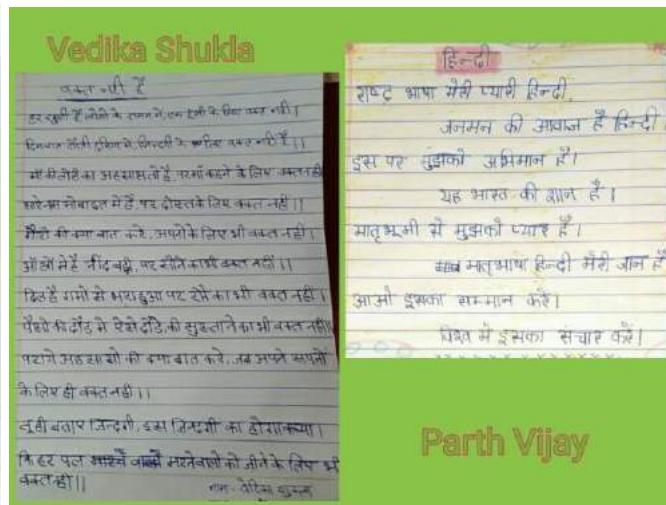 Vedika Shukla
वक्त नही है
हर खुशी है लोगो के दामन मे, एक हँसी के लिए वक्त नही।
दिनरात दौड़ती दुनिया मे, जिन्दगी के लिए वक्त नही है।।
माँ की लोरी का अहसास तो है, पर माँ कहने के लिए वक्त नही
सारे नाम मोबाइल में हैं, पर दोस्त के लिए वक्त नहीं।।
गैरो की क्या बात करे, अपनो के लिए भी वक्त नही।
आँखों में है नींद बड़ी, पर सोने का भी वक्त नहीं।।
दिल है गमो से भरा हुआ पर रोने का भी वक्त नहीं।
पैसो की दौड़ मे ऐसे दौड़े, की सुस्ताने का भी वक्त नही।।
पराये अहसासो की क्या बात करे, जब अपने सपनो
के लिए ही वक्त नही।।
तू ही बता ए जिन्दगी, इस जिन्दगी का होगा क्या।
कि हर पल मरनेवालो को जीने के लिए भी
वक्त नही।।
नाम - वेदिका शुक्ला
हिन्दी
राष्ट्र भाषा मेरी प्यारी हिन्दी,
जनमन की आवाज है हिन्दी।
इस पर मुझको अभिमान है।
यह भारत की शान है।
मातृभूमी से मुझको प्यार है।
मातृभाषा हिन्दी मेरी जान है
आओ इसका सम्मान करें।
विश्व में इसका संचार करें।
Parth Vijay